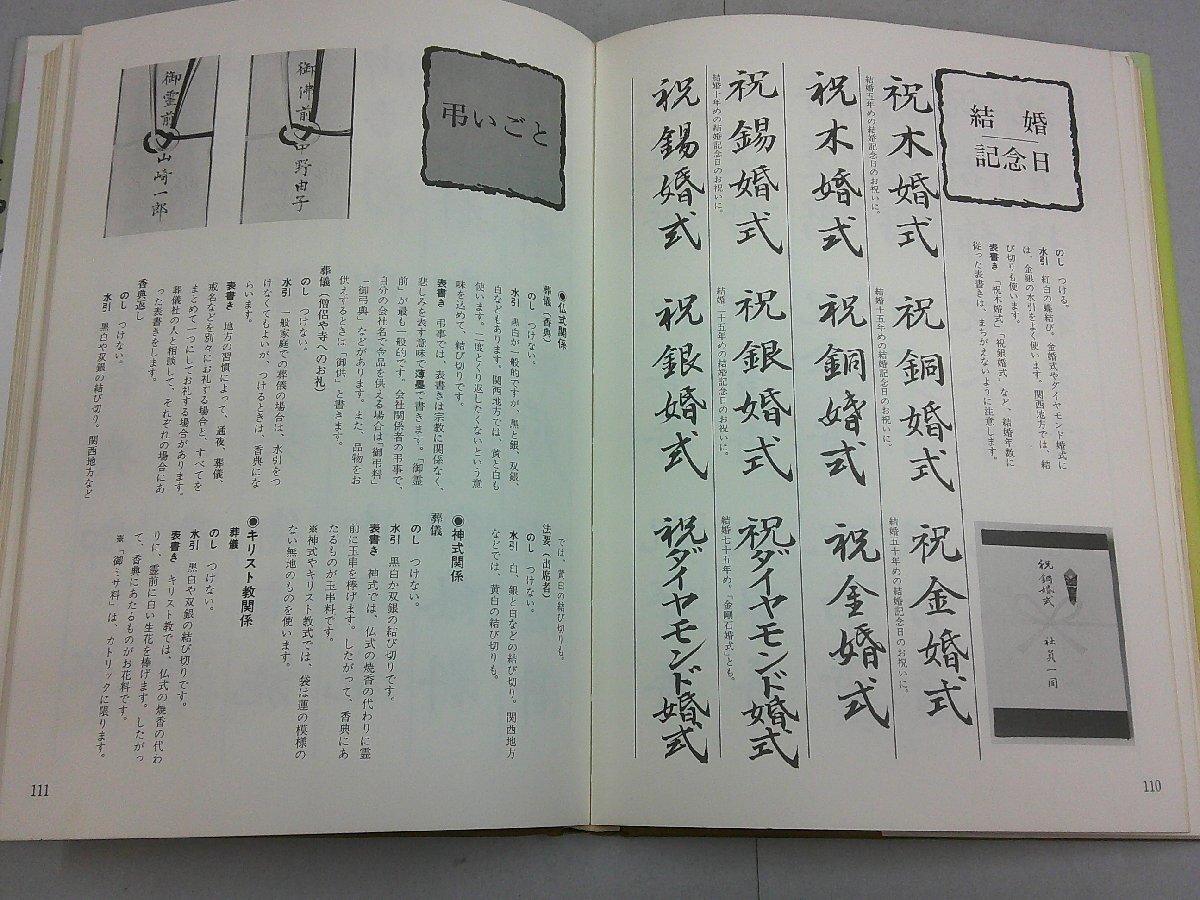 結婚
記念日
のし つける。
水引 紅白の蝶結び。金婚式やダイヤモンド婚式に
は、金銀の水引をよく使います。関西地方では、結
び切りも使います。
表書き 「祝木婚式」「祝銀婚式」など、結婚年数に
従った表書きは、まちがえないように注意します。
祝銅婚式
社員一同
祝木婚式
結婚五年めの結婚記念日のお祝いに。
祝木婚式
祝錫婚式
結婚十年めの結婚記念日のお祝いに。
祝錫婚式
祝銅婚式
結婚十五年めの結婚記念日のお祝いに。
祝銅婚式
祝銀婚式
結婚二十五年めの結婚記念日のお祝いに。
祝銀婚式
祝金婚式
結婚五十年めの結婚記念日のお祝いに。
祝金婚式
祝ダイヤモンド婚式
結婚七十五年め。「金剛石婚式」とも。
祝ダイヤモンド婚式
110
弔いごと
御沸前
中野由子
御霊前
山崎一郎
◉仏式関係
葬儀(香典)
のし つけない。
水引 黒白が一般的ですが、黒と銀、双銀、
白などもあります。関西地方では、黄と白も
使います。二度とくり返したくないという意
味を込めて、結び切りです。
表書き 弔事では、表書きは宗教に関係なく、
悲しみを表す意味で薄墨で書きます。「御霊
前」が最も一般的です。会社関係者の弔事で、
自分の会社名で金品を供える場合は「御弔料」
「御弓典」などがあります。また、品物をお
供えするときは「御供」と書きます。
葬儀(僧侶や寺へのお礼)
のし つけない。
水引 一般家庭での葬儀の場合は、水引をつ
けなくてもよいが、つけるときは、香典にな
らいます。
表書き 地方の習慣によって、通夜、葬儀、
戒名などを別々にお礼する場合と、すべてを
まとめて一つにしてお礼する場合があります。
葬儀社の人と相談して、それぞれの場合にあ
った表書きをします。
香典返し
のし つけない。
水引 黒白や双銀の結び切り。関西地方など
では、黄白の結び切りも。
法要(出席者)
のし つけない。
水引 白、銀と白などの結び切り。関西地方
などでは、黄白の結び切りも。
◉神式関係
葬儀
のし つけない。
水引 黒白か双銀の結び切りです。
表書き 神式では、仏式の焼香の代わりに霊
前に玉串を捧げます。したがって、香典にあ
たるものが玉串料です。
※神式やキリスト教式では、袋は蓮の模様の
ない無地のものを使います。
◉キリスト教関係
葬儀
のし つけない。
水引 黒白や双銀の結び切りです。
表書き キリスト教では、仏式の焼香の代わ
りに、霊前に白い生花を捧げます。したがっ
て、香典にあたるものがお花料です。
※「御ミサ料」は、カトリックに限ります。
111